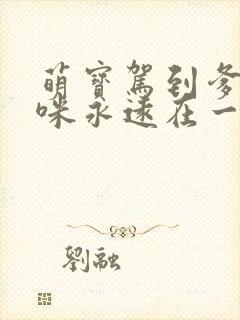 萌寶駕到爹
咪永遠在一
劉融